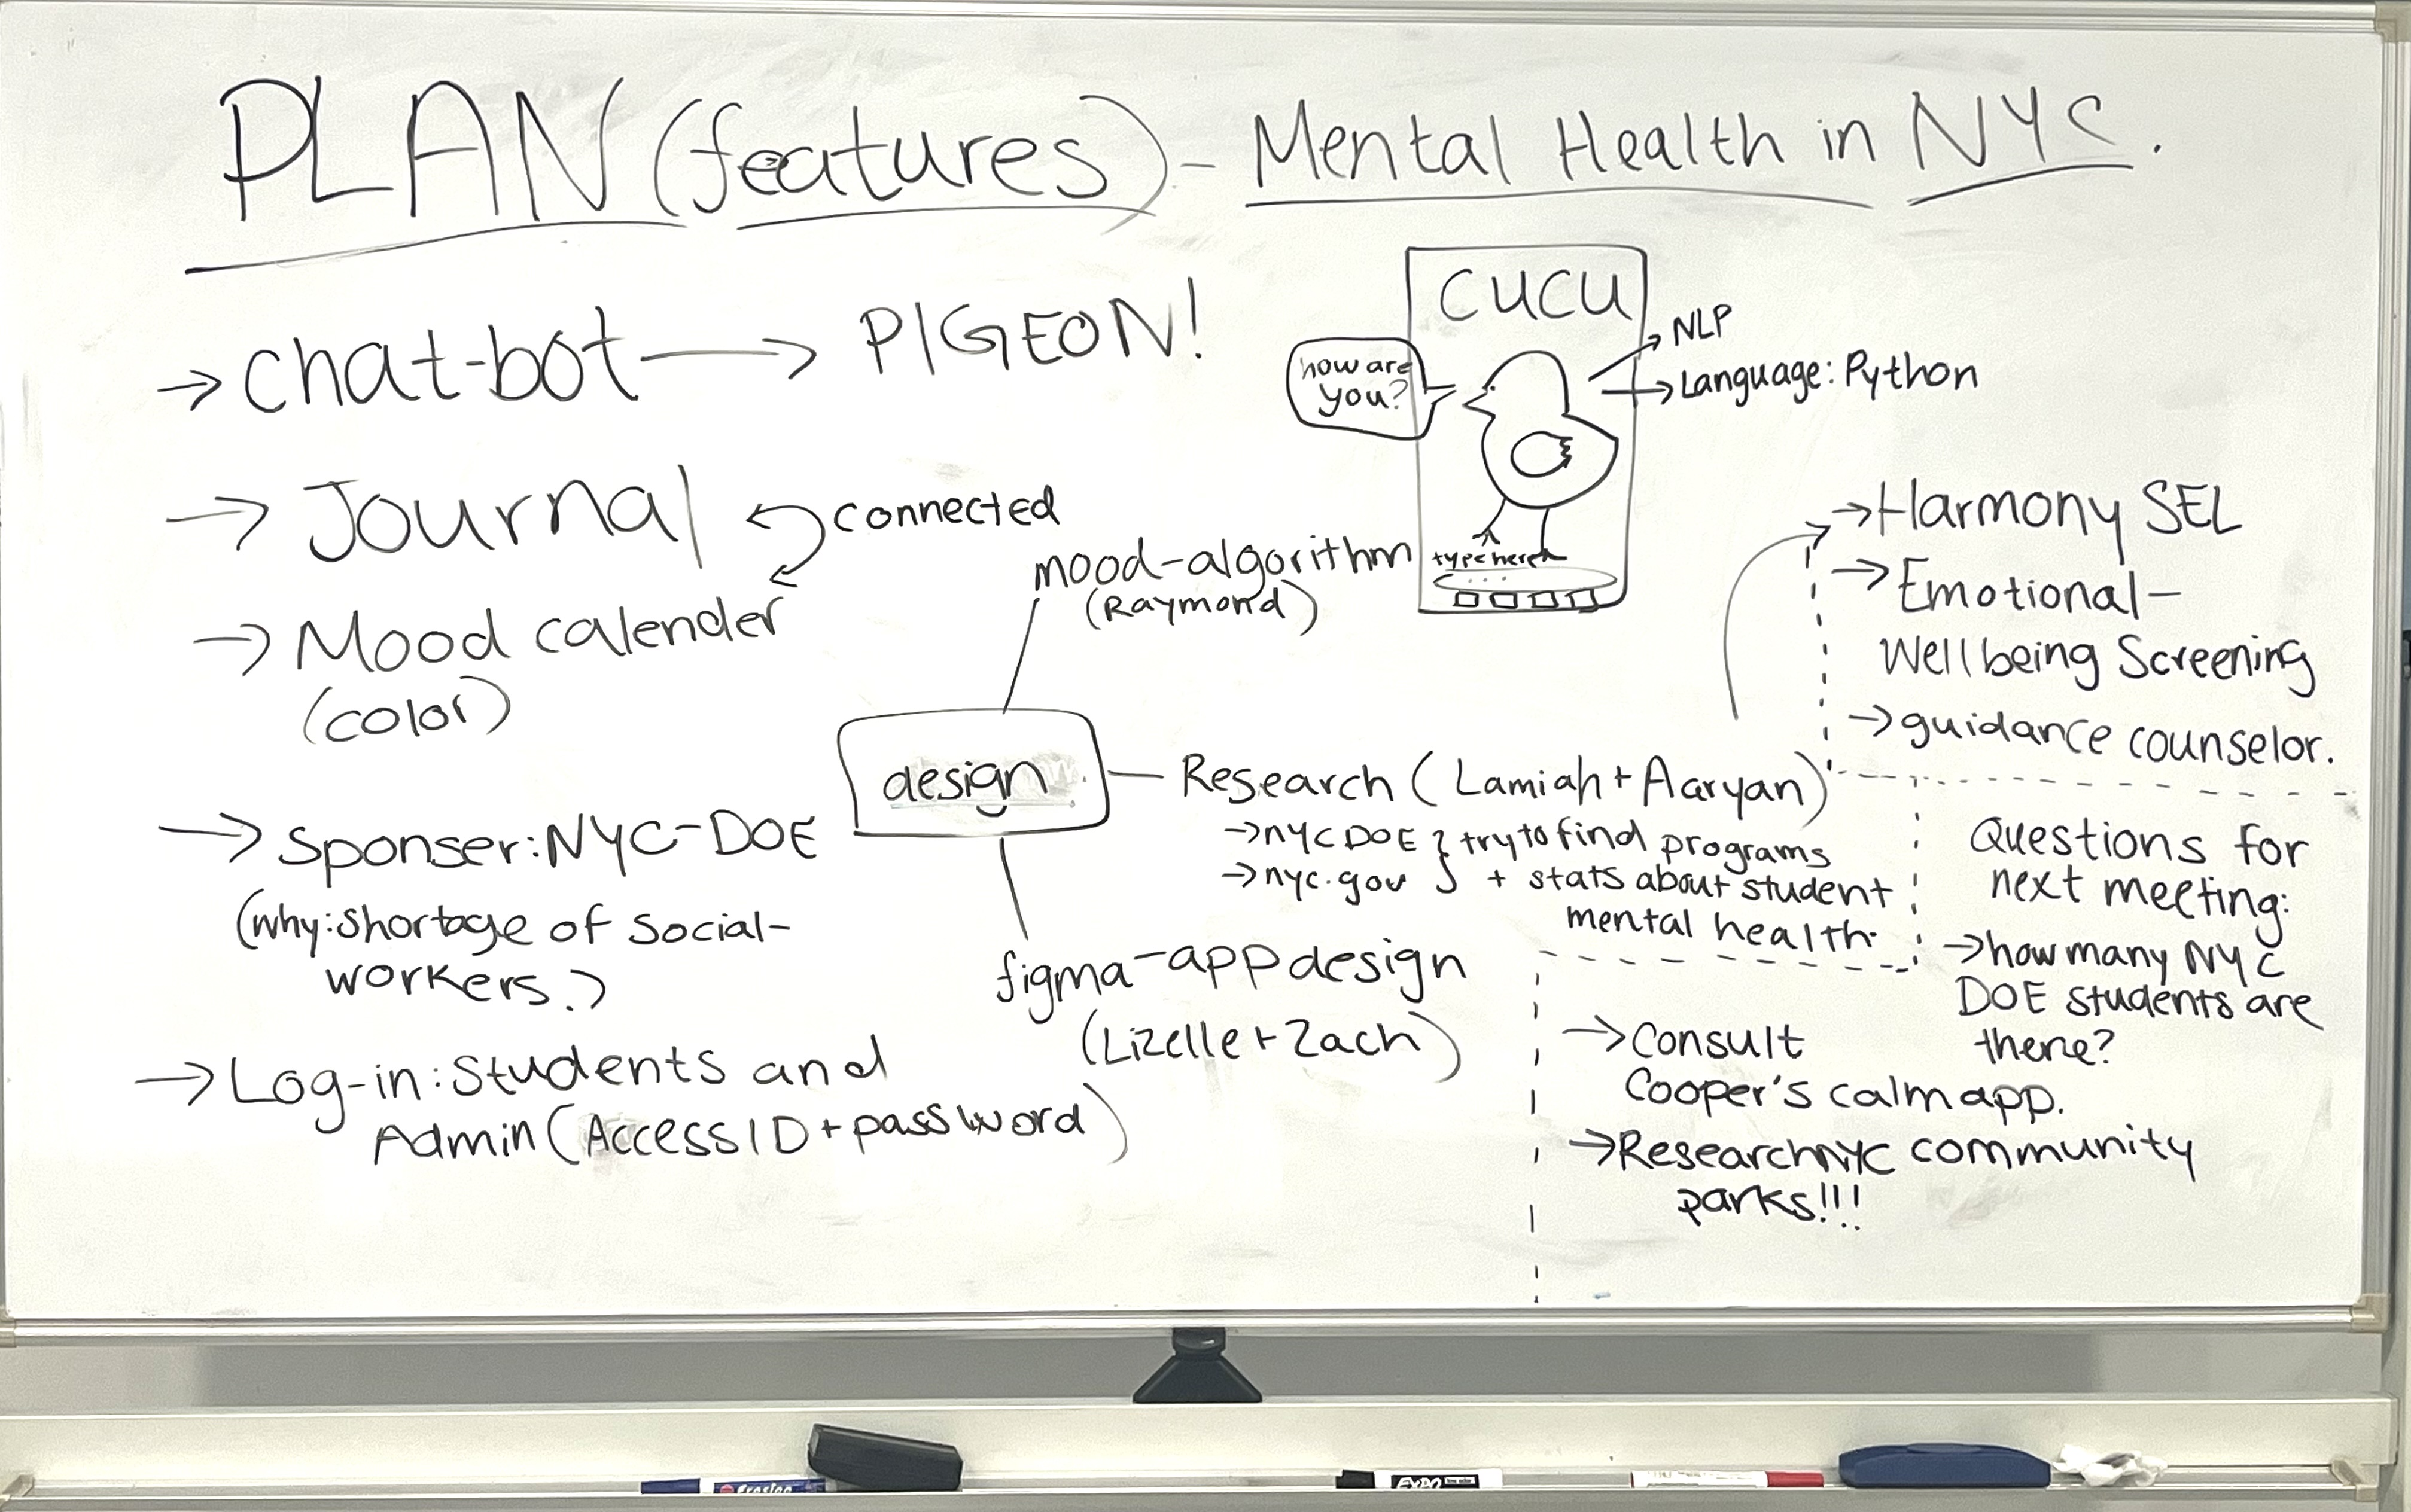 PLAN (features) - Mental Health in NYC.
→ chat-bot → PIGEON!
CUCU
how are
you?
NLP
Language: Python
type here
→ Journal
connected
→ Mood calender
(color)
mood-algorithm
(Raymond)
design
Research (Lamiah + Aaryan)
→ nyc DOE } try to find programs
→ nyc.gov } + stats about student
mental health.
figma-app design
(Lizelle + Zach)
→ Harmony SEL
→ Emotional-
Wellbeing Screening
→ guidance counselor.
→ Sponser: NYC-DOE
(why: shortage of social-
workers.)
→ Log-in: Students and
Admin (Access ID + password)
Questions for
next meeting:
→ how many NYC
DOE students are
there?
→ Consult
Cooper's calm app.
→ Research NYC community
parks!!!
EXPO